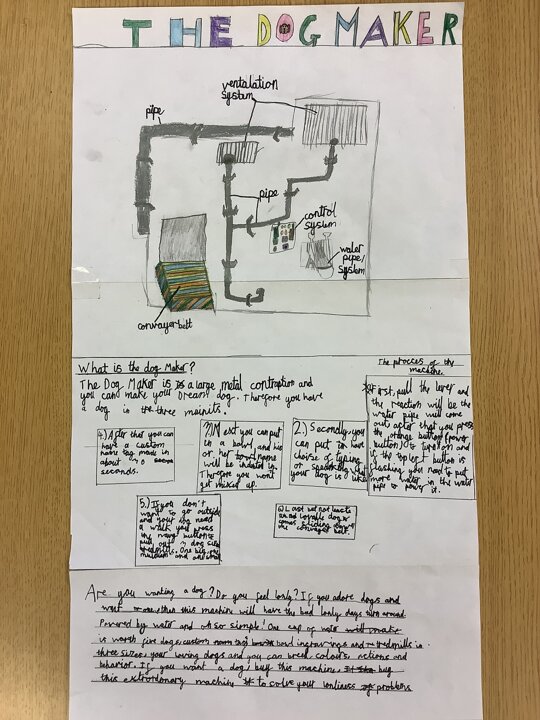 THE DOG MAKER
ventalation
system
pipe
pipe
control
system
water
pipe/
system
convayer belt
What is the dog Maker?
The Dog Maker is a large metal contraption and
you can make your Dream dog. Therefore you have
a dog in three
The procces of thy
machine.
First, pull the lever and
the reaction will be the
water pipe will come
out after that you press
the orange button (power
button) to turn on and
if the top left button is
flashing you need to put
more water in the water
pipe to power it.
2.) Secondly, you
can put in your
choise of typing
or speaking
your dog is like
Next you can put
in a bowl and his
or her name
will be
Therefore you won't
get mixed up.
4.) After that you can
have a custom
name tag made in
about
seconds.
5.) If you don't
want to go outside
and your dog need
a walk you press
the navy button to
pull out dog size
One big, one
and one small
6.) Last but not least
lovable dog
comes sliding down
the convayer belt.
Are you wanting a dog? Do you feel lonly? If you adore dogs and
want one then this machine will have the bad lonly days turn around.
Powered by water and so simple! One cup of water
is worth five dogs, custom name tag, bowl and tredmills in
three sizes, your loving dogs and you can breed, colours, actions and
behavior. If you want a dog, buy this machine, buy
this extrordonary machine to solve your lonliness problems